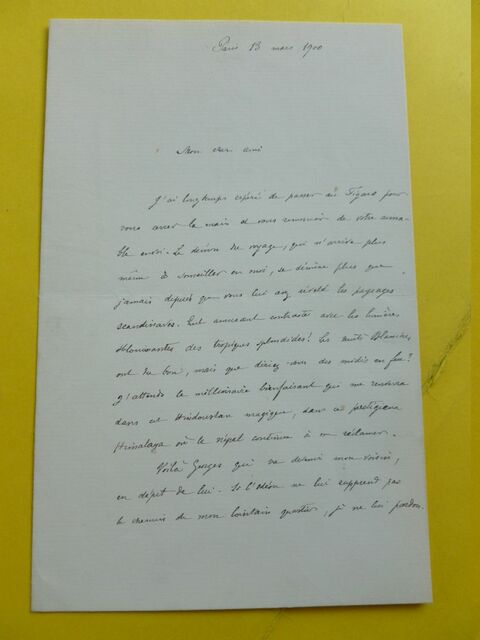 Paris 13 mars 1900
Mon cher ami
J'ai longtemps espéré de passer au Figaro pour
vous serrer la main et vous remercier de votre aima-
ble envoi. Le démon du voyage, qui n'arrive plus
même à sommeiller en moi, se démène plus que
jamais depuis que vous lui avez révélé les paysages
scandinaves. Quel amusant contraste avec les lumières
éblouissantes des tropiques splendides! Les nuits blanches
ont du bon, mais que diriez-vous des midis en feu?
J'attends le millionnaire bienfaisant qui me renverra
dans cet Hindoustan magique, dans ce prestigieux
Himalaya où le Népal continue à me réclamer.
Voilà Georges qui va devenir mon voisin,
en dépit de lui. Si l'Odéon ne lui apprend pas
le chemin de mon lointain quartier, je ne lui pardonne